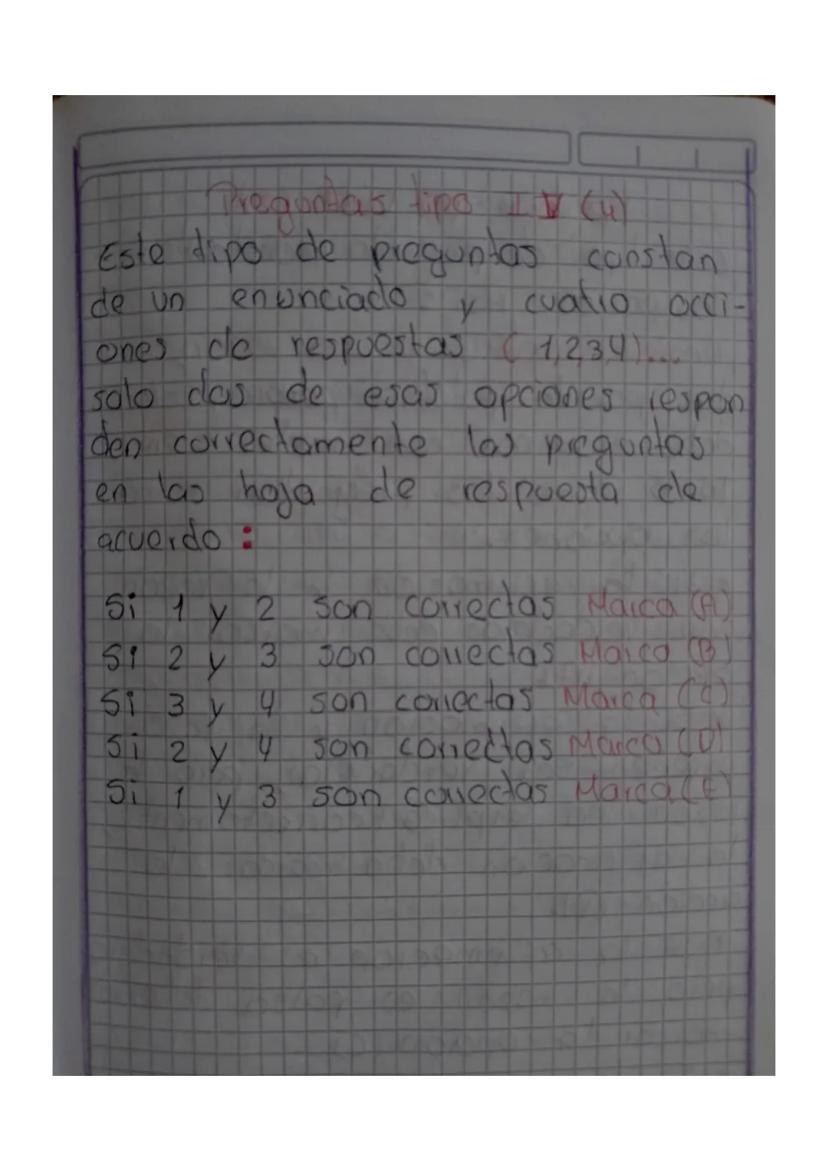 Preguntas tipo IV (4)
Este tipo de preguntas constan
de un enunciado y cuatro occi-
ones de respuestas (1,2,3,4)...
solo dos de esas opciones respon
den correctamente las preguntas
en las hoja de respuesta de
acuerdo:
Si 1 y 2 son correctas Marca (A)
Si 2 y 3 son correctas Marca (B)
Si 3 y 4 son correctas Marca (C)
Si 2 y 4 son correctas Marca (D)
Si 1 y 3 son correctas Marca (E)